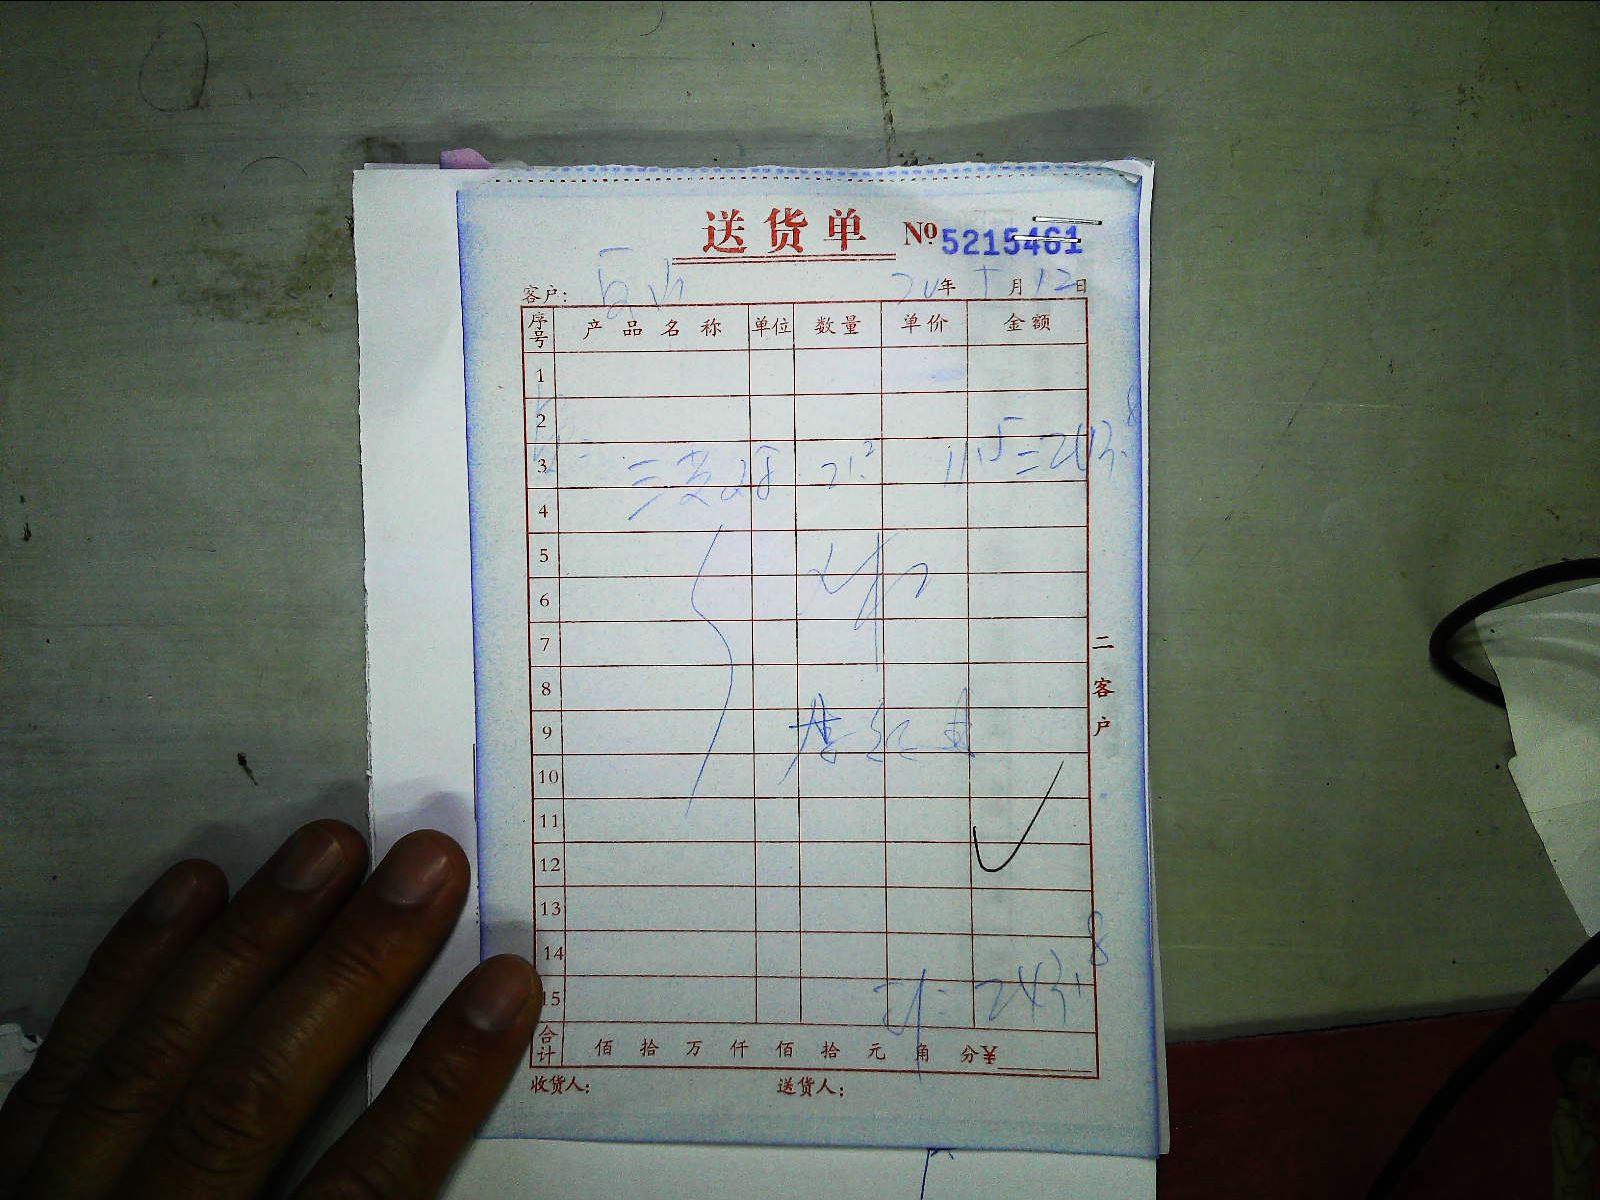 送货单 № 5215461
客户: 年 月 12 日
序号 产品名称 单位 数量 单价 金额
1
2
3 三黄 21.2 11.5=243.8
4
5
6
7
8
9
10
11
12
13
14
15 243.8
合计 佰 拾 万 仟 佰 拾 元 角 分 ¥
收货人: 送货人:
二客户